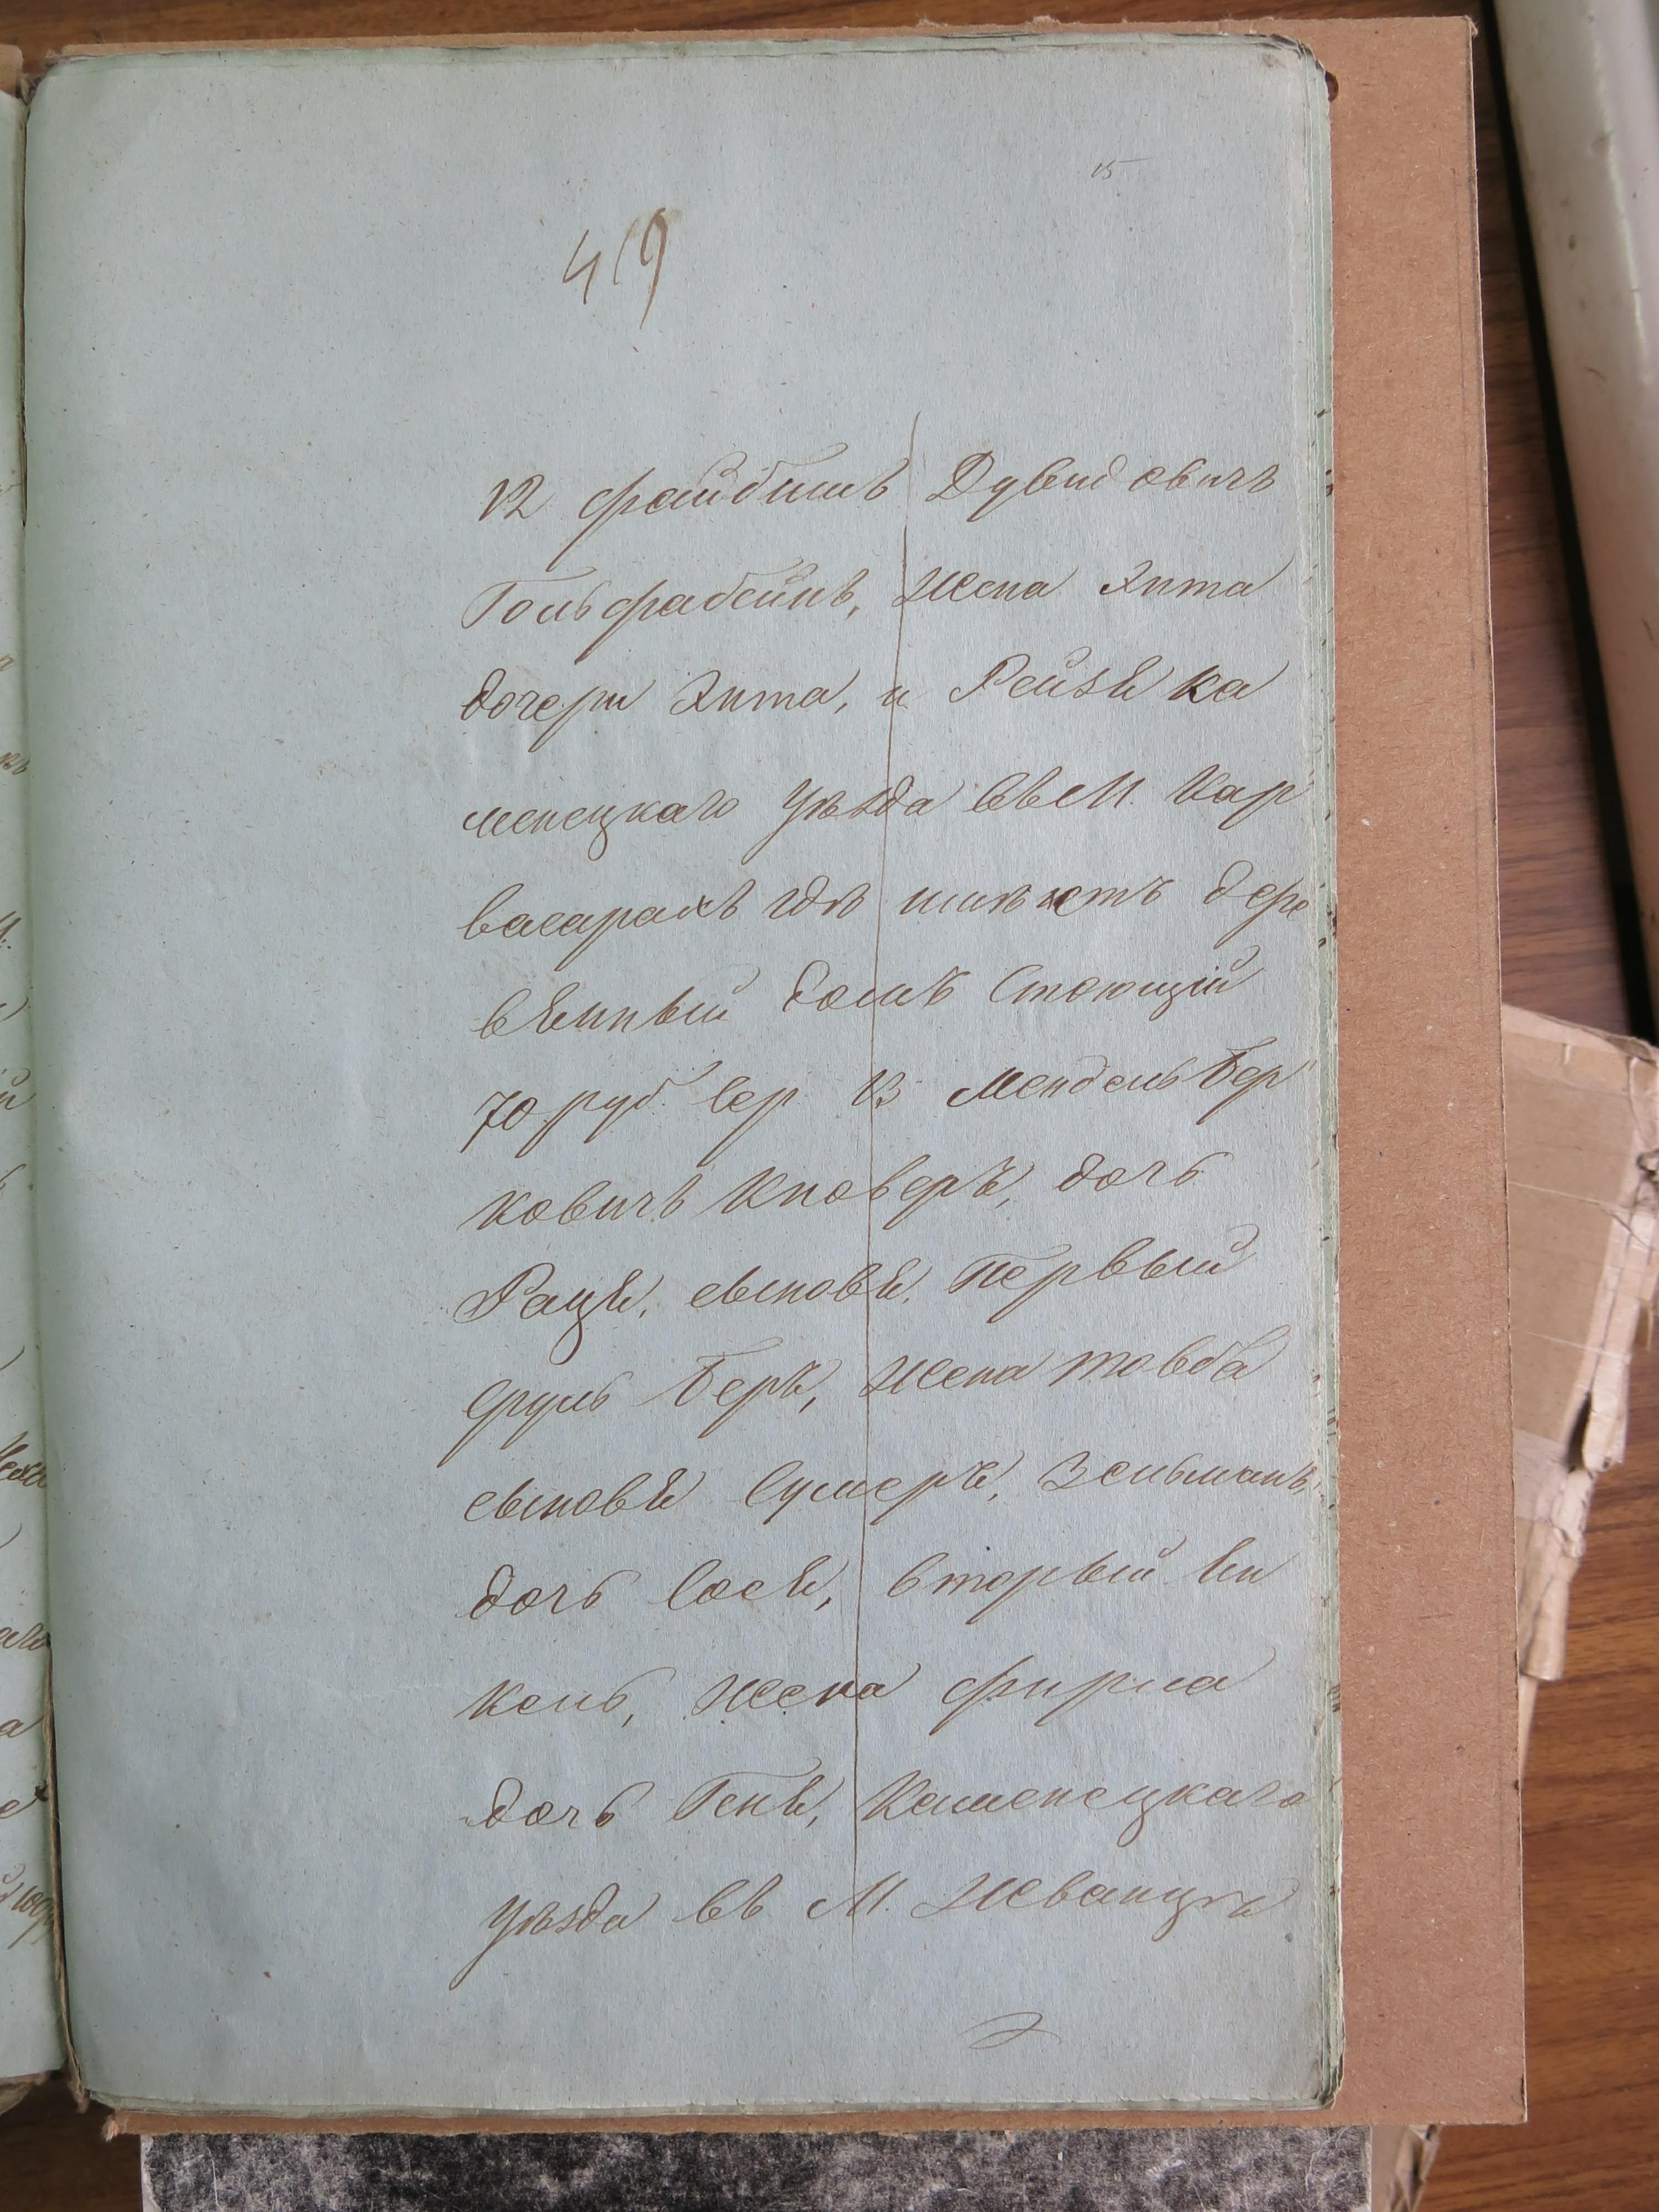 15
419
12 Файбишъ Дувидовичъ
Гольфабейнъ, жена Хита
дочери Хита, и Рейзя ка
менецкаго уѣзда въ М. Кар
васарахъ гдѣ имѣетъ дере
вянный домъ стоющій
70 руб сер 13 Мендель Бер
ковичъ Кноверъ, дочь
Рация, сыновя, первый
Сруль Беръ, жена товба
сыновя Сумеръ, Зельманъ,
дочь Сося, вторый Ян
кель, жена фирма
дочь Геня, Каменецкаго
уѣзда въ М. Жванцѣ